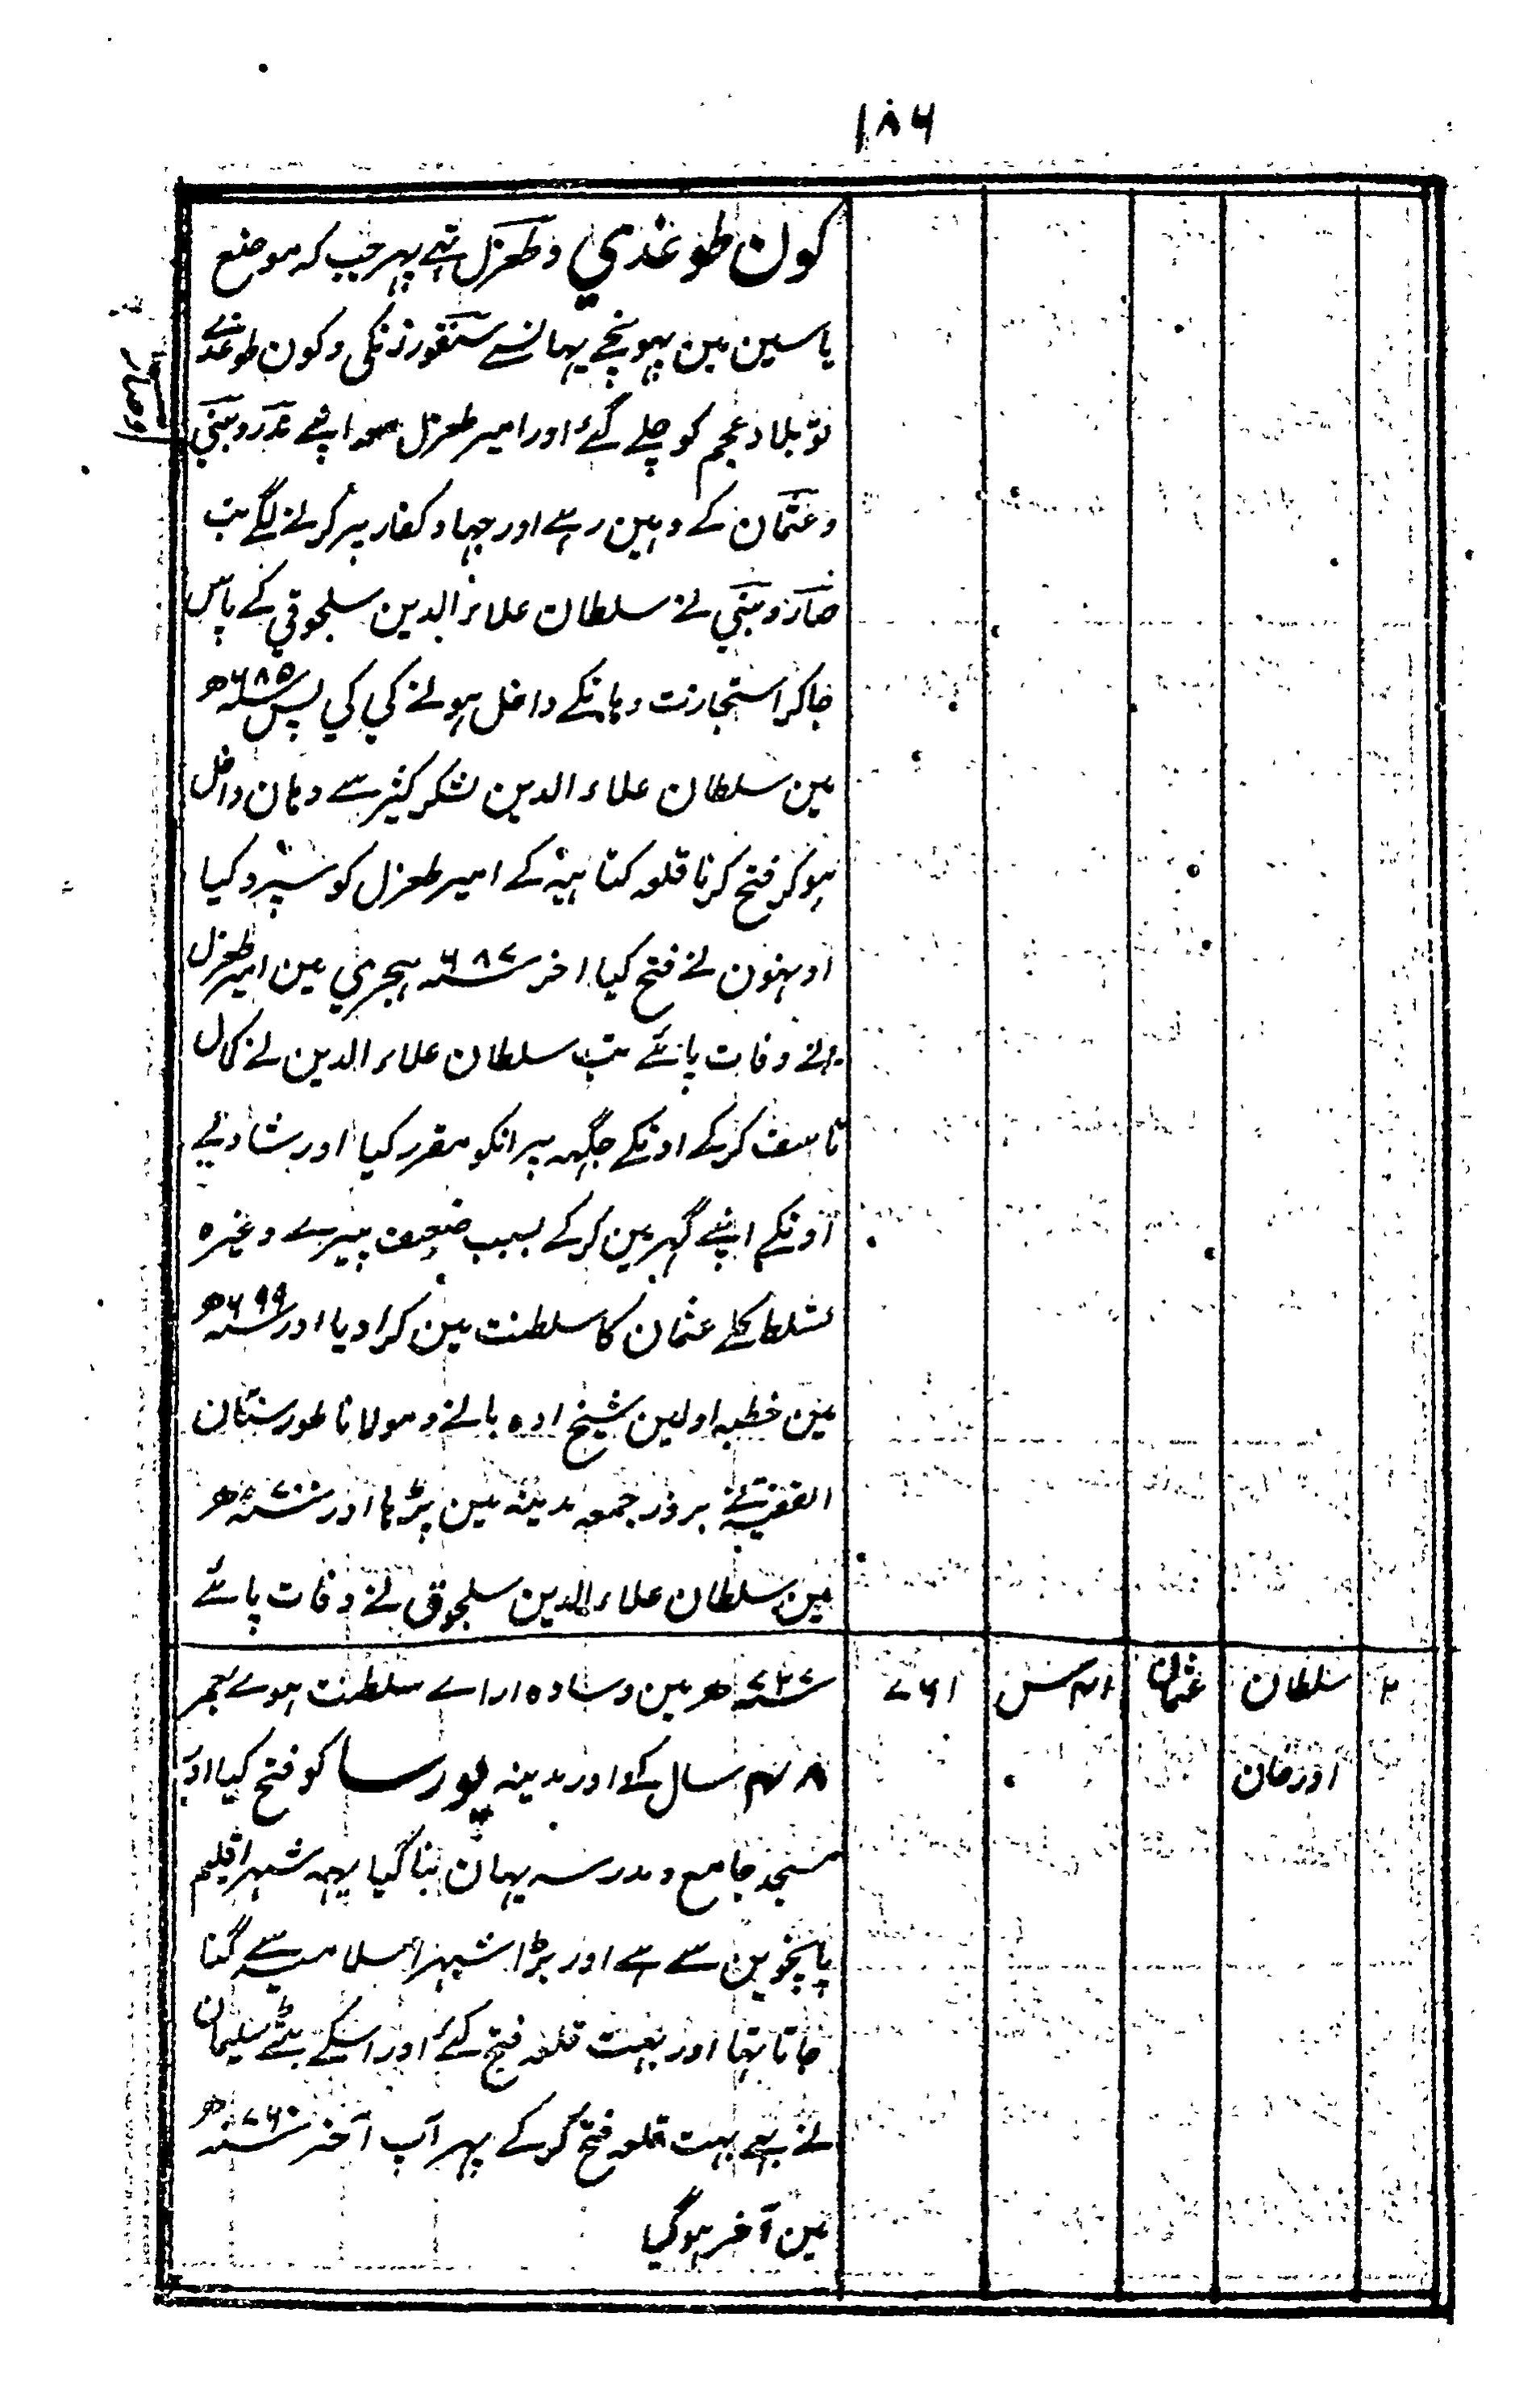 ۱۸۶
کون طوغدي و طغرل تہے پہر جب کہ موضع
یاسین مین پہونچے یہانسے سنقور زنکی و کون طوغدے
تو بلاد عجم کو چلے گئے اور امیر طغرل معہ اپنے
و عثمان کے وہین رہے اور جہاد کفار پر کرنے لگے تب
نے سلطان علاء الدین سلجوقي کے پاس
جاکر استجازت وہانکے داخل ہونے کي کي پس سنہ ۶۸۵ھ
مین سلطان علاء الدین لشکر کثیر سے وہان داخل
ہوکر فتح کرنا قلعہ کتاہیہ کے امیر طغرل کو سپرد کیا
اونہون نے فتح کیا اخر سنہ ۶۸۷ ہجري مین امیر طغرل
نے وفات پائے تب سلطان علاء الدین نے کمال
تاسف کرکے اونکے جگہہ پر انکو مقرر کیا اور شادیے
اونکے اپنے گہر مین کرکے بسبب ضعف پیرے وغیرہ
تسلط کلے عثمان کا سلطنت مین کرا دیا اور سنہ ۶۹۹ھ
مین خطبہ اولین شیخ ادہ بالے و مولانا طورستان
الفقیہ نے بروز جمعہ مدینہ مین پڑہا اور سنہ ۷۰۰ھ
مین سلطان علاء الدین سلجوقی نے وفات پائے
۲ سلطان اورخان عثمان ۷۶۱
سنہ ۷۲۷ھ مین وسادہ اراے سلطنت ہوے بعمر
۴۸ سال کے اور مدینہ پورسا کو فتح کیا اور
مسجد جامع و مدرسہ یہان بنا گیا یہہ شہر اقلیم
پانچوین سے ہے اور بڑا شہر اسلامیہ سے گنا
جاتا تہا اور بہت قلعہ فتح کئے اور اسکے بیٹے سلیمان
نے بہے بہت قلعہ فتح کرکے پہر آپ آخر سنہ ۷۶۰ھ
مین آخر ہوگیا